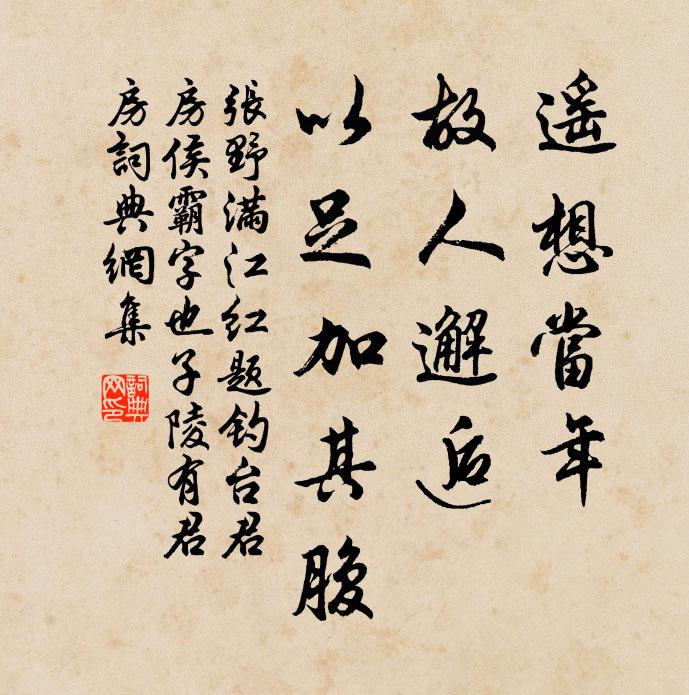 遥想當年
故人邂逅
以足加其腹
張野滿江红题钓台君
房侯霸字也子陵有君
房詞典網集
詞典網印